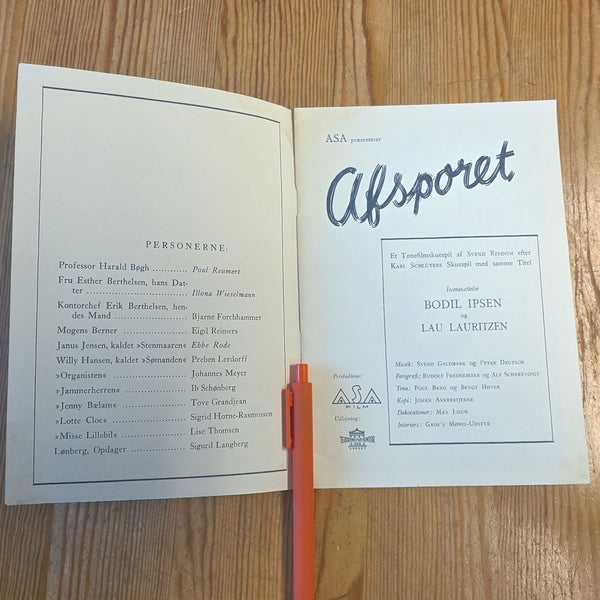 PERSONERNE:
Professor Harald Bøgh ............ Poul Reumert
Fru Esther Berthelsen, hans Dat-
ter ............................ Illona Wieselmann
Kontorchef Erik Berthelsen, hen-
des Mand .................... Bjarne Forchhammer
Mogens Berner .................... Eigil Reimers
Janus Jensen, kaldet »Stenmaaren« Ebbe Rode
Willy Hansen, kaldet »Sømanden« Preben Lerdorff
»Organisten« .................... Johannes Meyer
»Jammerherren« .................... Ib Schønberg
»Jenny Bælam« .................... Tove Grandjean
»Lotte Cloc« .................... Sigrid Horne-Rasmussen
»Misse Lillebil« .................... Lise Thomsen
Lønberg, Opdager .................... Sigurd Langberg
ASA præsenterer
Afsporet
Et Tonefilmskuespil af SVEND RINDOM efter
KARL SCHLÜTERS Skuespil med samme Titel
Iscenesættelse
BODIL IPSEN
og
LAU LAURITZEN
Musik: SVEND GYLDMARK og PETER DEUTSCH
Fotografi: RUDOLF FREDERIKSEN og ALF SCHNÉEVOIGT
Tone: POUL BANG og BENGT HØYER
Kopi: JOHAN ANKERSTJERNE
Dekorationer: MAX LOUW
Interiørs: GADE'S MØBEL-UDSTYR
Produktion:
ASA
FILM
Udlejning: